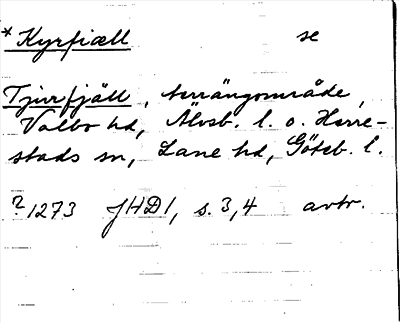 * Kyrfiæll se
Tjurfjäll, terrängområde,
Valbo hd, Älvsb. l. o. Herre-
stads sn, Lane hd, Göteb. l.
? 1273 JHD 1, s. 3,4 avtr.